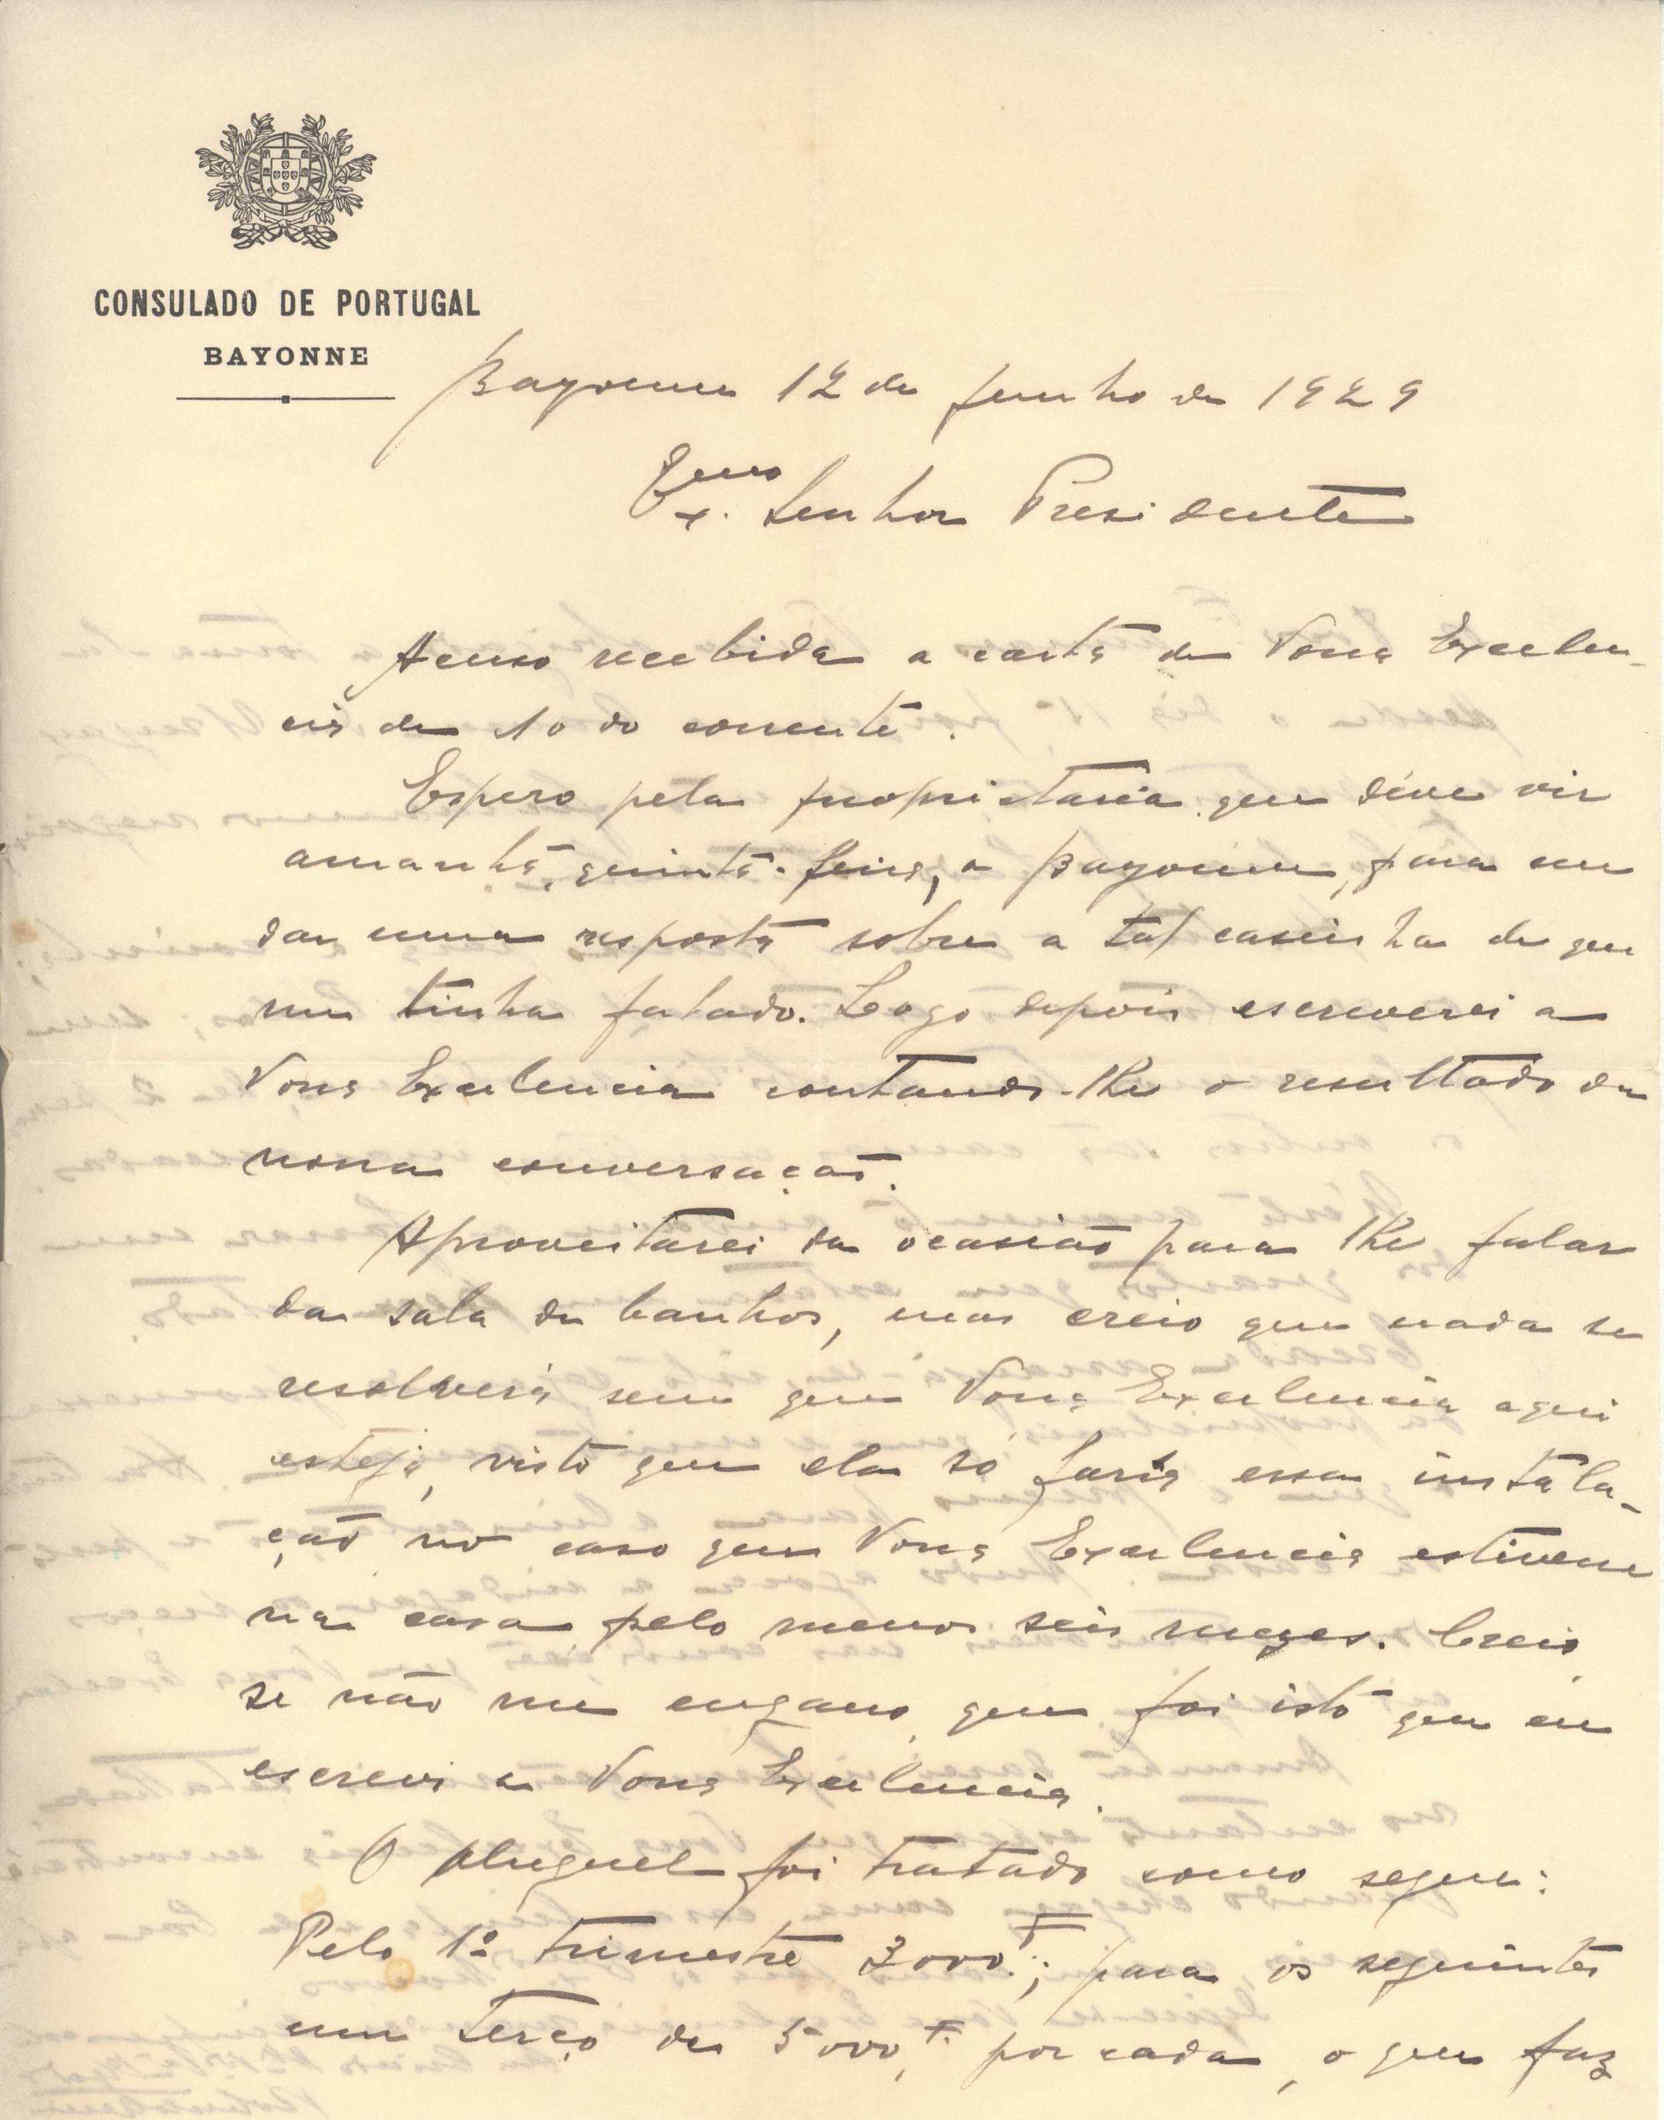 CONSULADO DE PORTUGAL
BAYONNE
Bayonne 12 de Junho de 1929
Exmo. Senhor Presidente
Acuso recebida a carta de Vossa Excelen-
cia de 10 do corrente.
Espero pela proprietaria que deve vir
amanhã, quinta-feira, a Bayonne, para me
dar uma resposta sobre a tal casinha de que
me tinha falado. Logo depois escreverei a
Vossa Excelencia contando-lhe o resultado da
nossa conversação.
Aproveitarei da ocasião para lhe falar
da sala de banhos, mas creio que nada se
resolverá sem que Vossa Excelencia aqui
esteja, visto que ela só faria essa instala-
ção no caso que Vossa Excelencia estivesse
na casa pelo menos seis mezes. Creio,
se não me engano, que foi isto que eu
escrevi a Vossa Excelencia.
O aluguel foi tratado como segue:
Pelo 1º trimestre 3000F.; para os seguintes
um terço de 5000F. por cada, o que faz